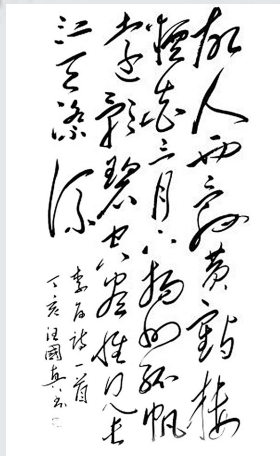 故人西辭黃鶴樓
煙花三月下揚州孤帆
遠影碧空盡惟見長
江天際流
李白詩一首
丁亥汪國真书